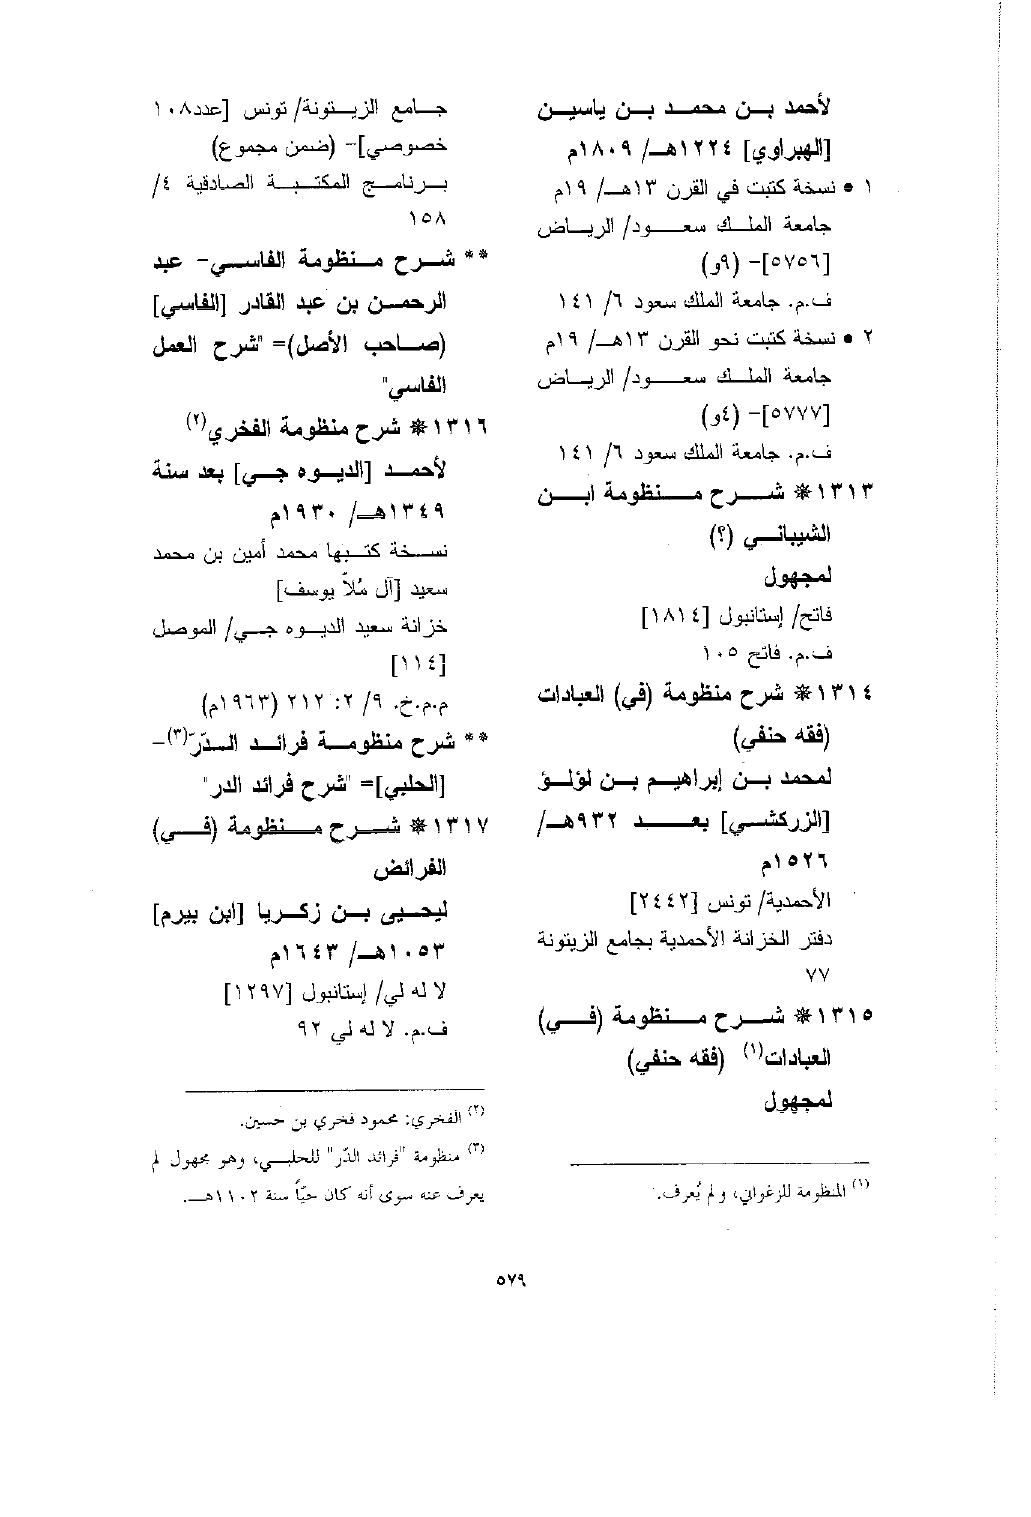 لأحمد بن محمد بن ياسين
[الهبراوي] ١٢٢٤هـ/ ١٨٠٩م
١ • نسخة كتبت في القرن ١٣هـ/ ١٩م
جامعة الملك سعود/ الرياض
[٥٧٥٦]- (٩و)
ف.م. جامعة الملك سعود ٦/ ١٤١
٢ • نسخة كتبت نحو القرن ١٣هـ/ ١٩م
جامعة الملك سعود/ الرياض
[٥٧٧٧]- (٤و)
ف.م. جامعة الملك سعود ٦/ ١٤١
١٣١٣* شرح منظومة ابن
الشيباني (؟)
لمجهول
فاتح/ إستانبول [١٨١٤]
ف.م. فاتح ١٠٥
١٣١٤* شرح منظومة (في) العبادات
(فقه حنفي)
لمحمد بن إبراهيم بن لؤلؤ
[الزركشي] بعد ٩٣٢هـ/
١٥٢٦م
الأحمدية/ تونس [٢٤٤٢]
دفتر الخزانة الأحمدية بجامع الزيتونة
٧٧
١٣١٥* شرح منظومة (في)
العبادات(١) (فقه حنفي)
لمجهول
(١) المنظومة للزغواني، ولم يُعرف.
جامع الزيتونة/ تونس [عدد١٠٨
خصوصي]- (ضمن مجموع)
برنامج المكتبة الصادقية ٤/
١٥٨
** شرح منظومة الفاسي- عبد
الرحمن بن عبد القادر [الفاسي]
(صاحب الأصل)= "شرح العمل
الفاسي"
١٣١٦* شرح منظومة الفخري(٢)
لأحمد [الديوه جي] بعد سنة
١٣٤٩هـ/ ١٩٣٠م
نسخة كتبها محمد أمين بن محمد
سعيد [آل مُلاّ يوسف]
خزانة سعيد الديوه جي/ الموصل
[١١٤]
م.م.خ. ٩/ ٢: ٢١٢ (١٩٦٣م)
** شرح منظومة فرائد الدّرّ(٣)-
[الحلبي]= "شرح فرائد الدر"
١٣١٧* شرح منظومة (في)
الفرائض
ليحيى بن زكريا [ابن بيرم]
١٠٥٣هـ/ ١٦٤٣م
لا له لي/ إستانبول [١٢٩٧]
ف.م. لا له لي ٩٢
(٢) الفخري: محمود فخري بن حسين.
(٣) منظومة "فرائد الدّر" للحلبي، وهو مجهول لم
يعرف عنه سوى أنه كان حيّاً سنة ١١٠٢هـ.
٥٧٩